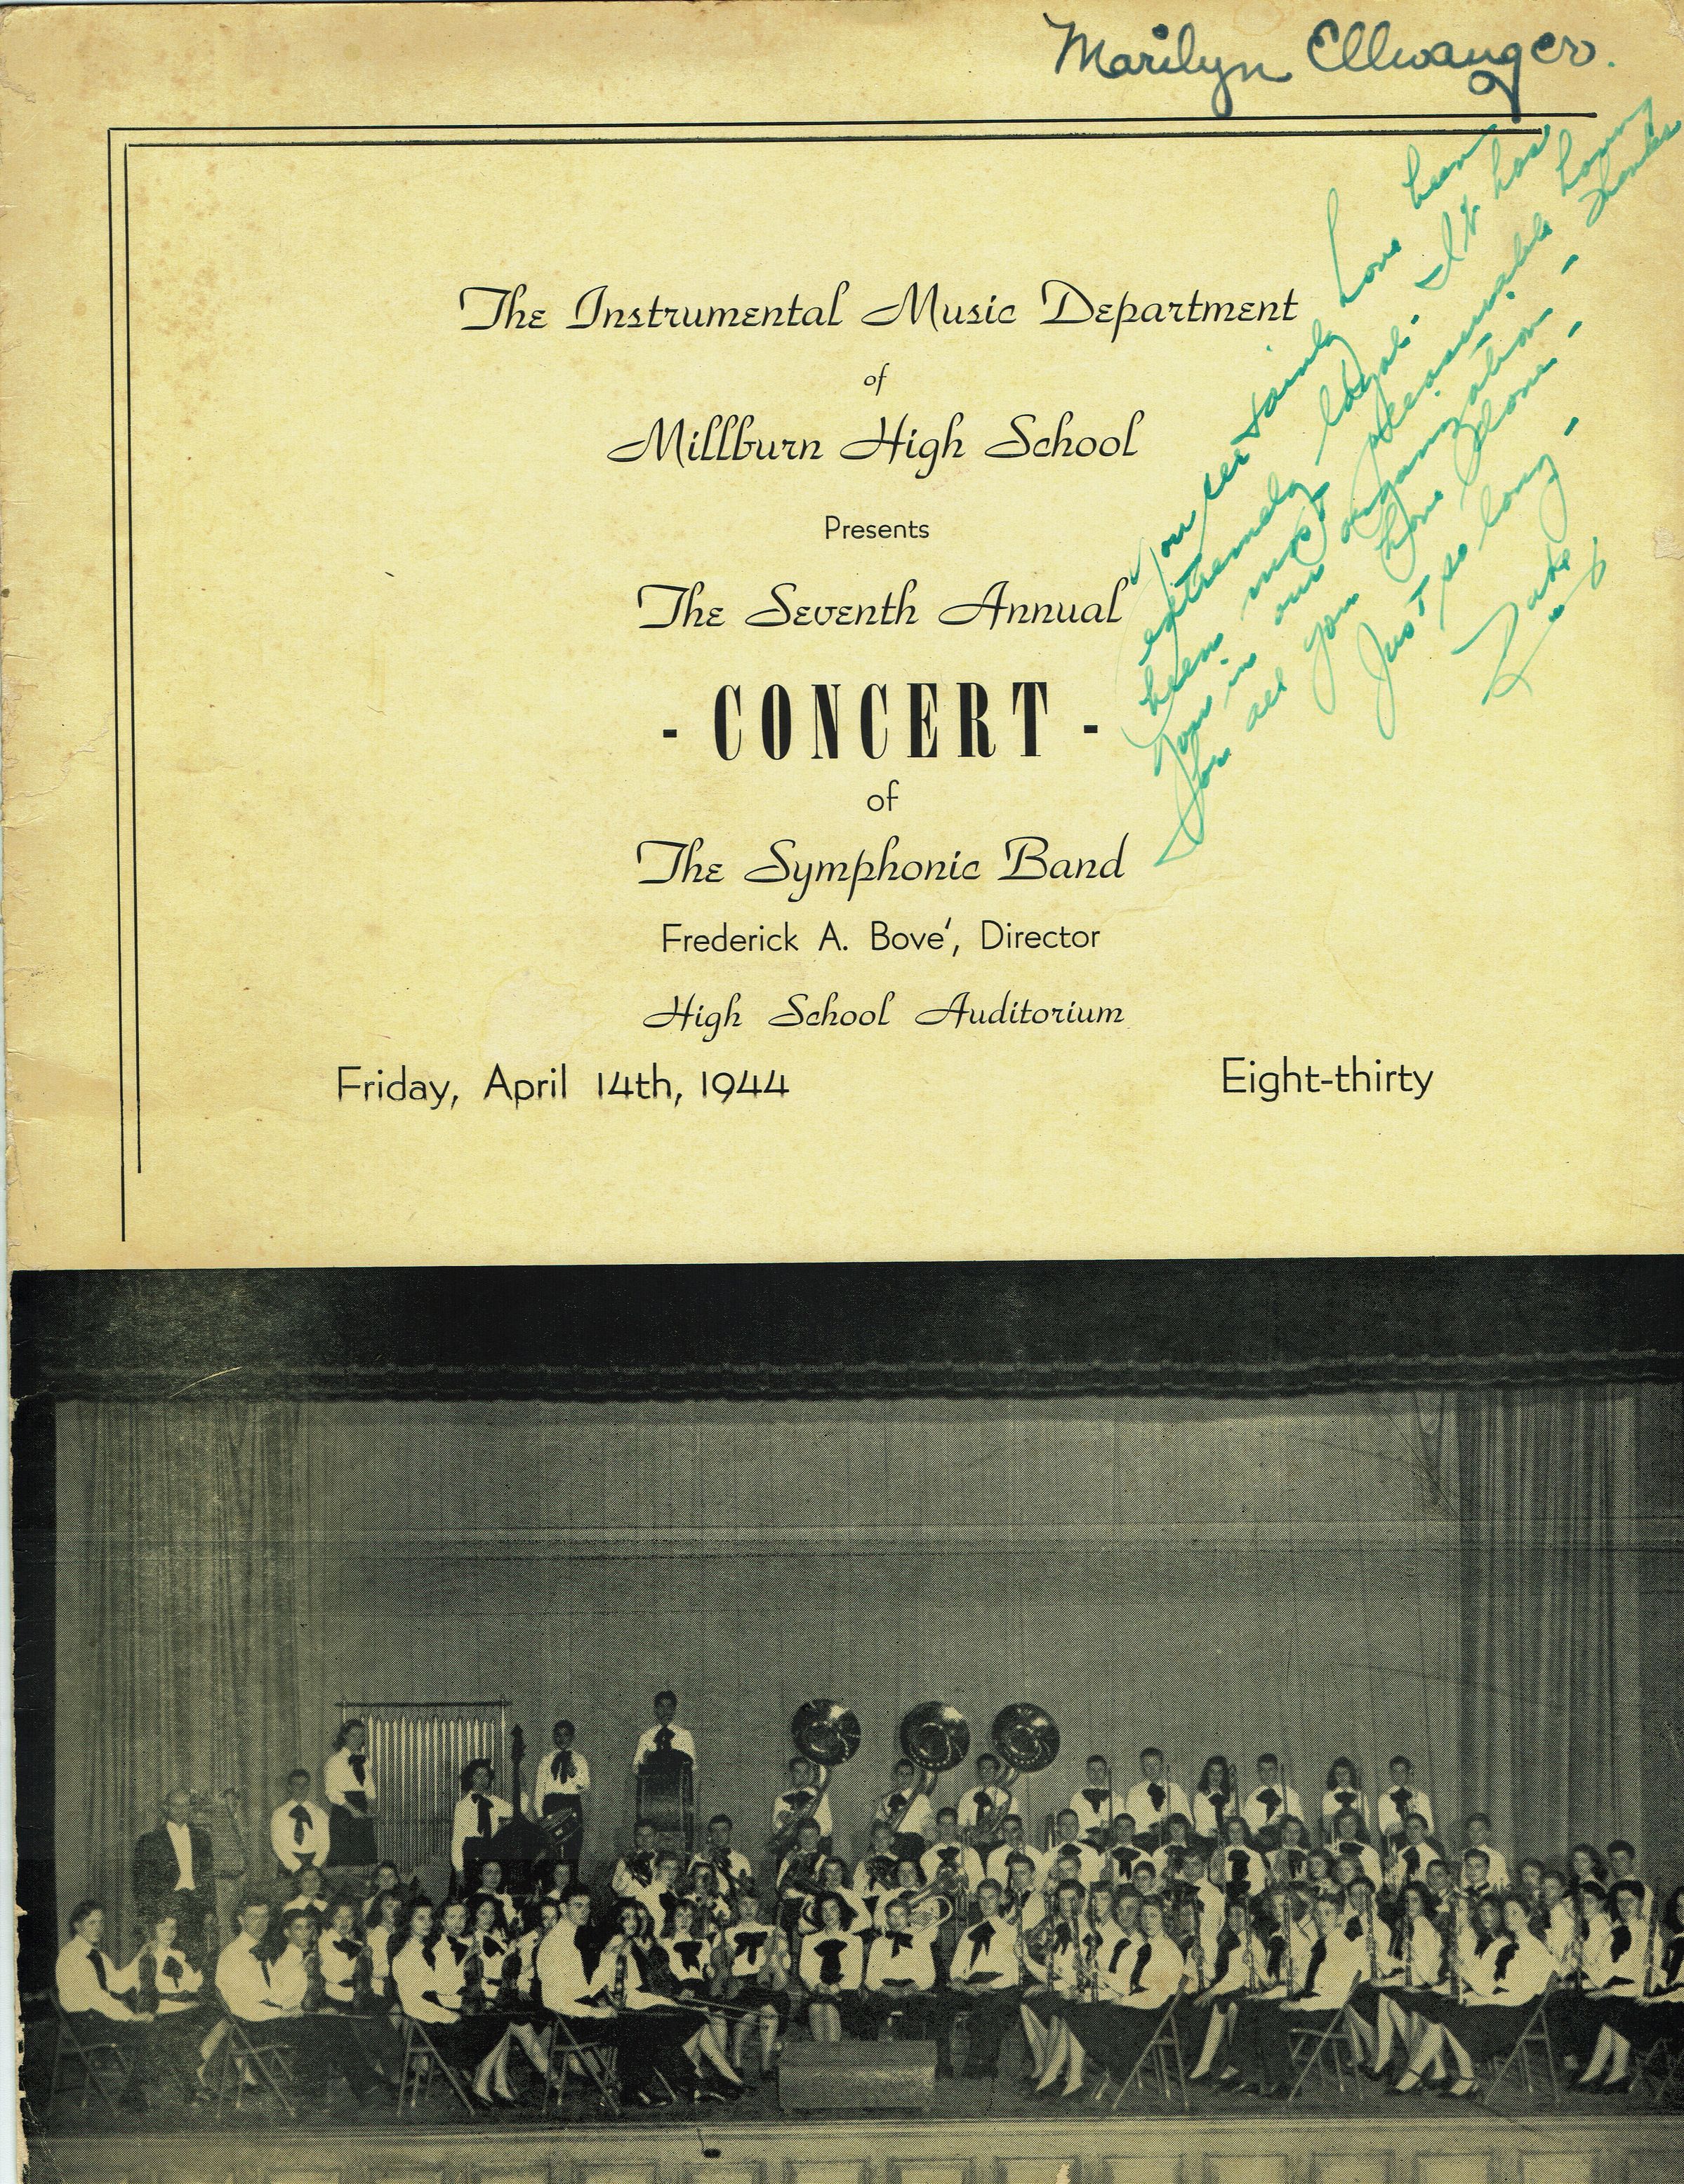 Marilyn Ellwanger.
The Instrumental Music Department
of
Millburn High School
Presents
The Seventh Annual
- CONCERT -
of
The Symphonic Band
Frederick A. Bove', Director
High School Auditorium
Friday, April 14th, 1944
Eight-thirty
You certainly have been
extremely loyal. It has
been most pleasurable having
you in our organization - Thanks
for all you have done -
Just so long -